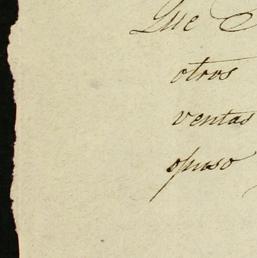 Que
otros
ventas
opuso